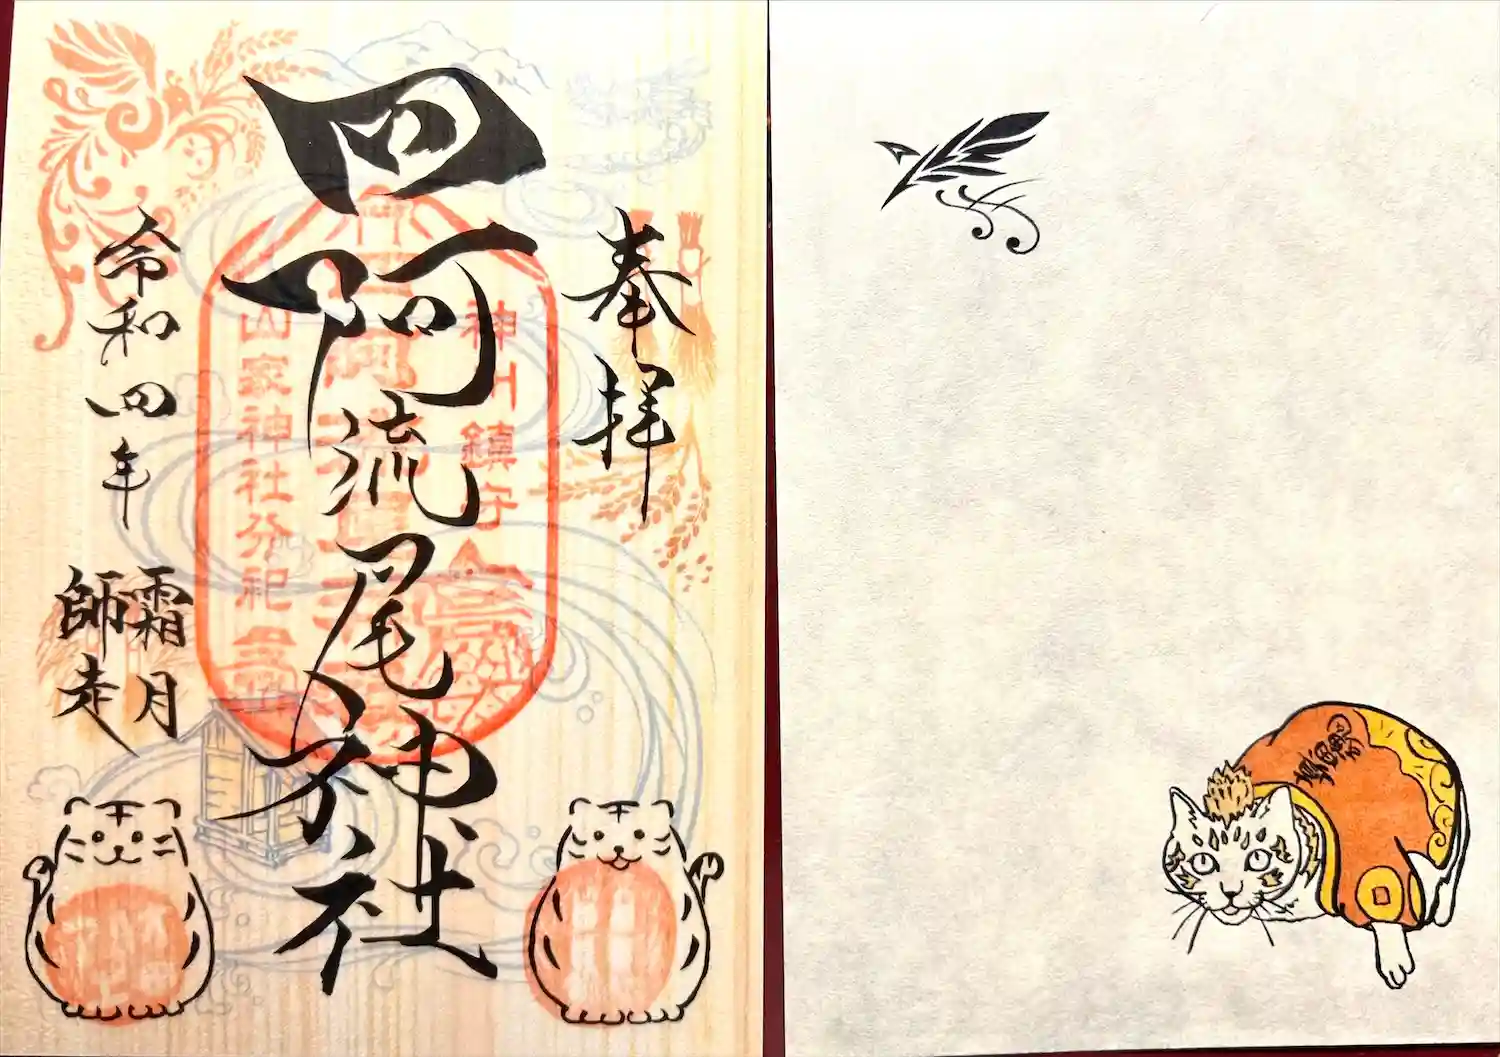 奉拝
神川鎮守
四阿流尾神社
山家神社分祀
令和四年
霜月
師走